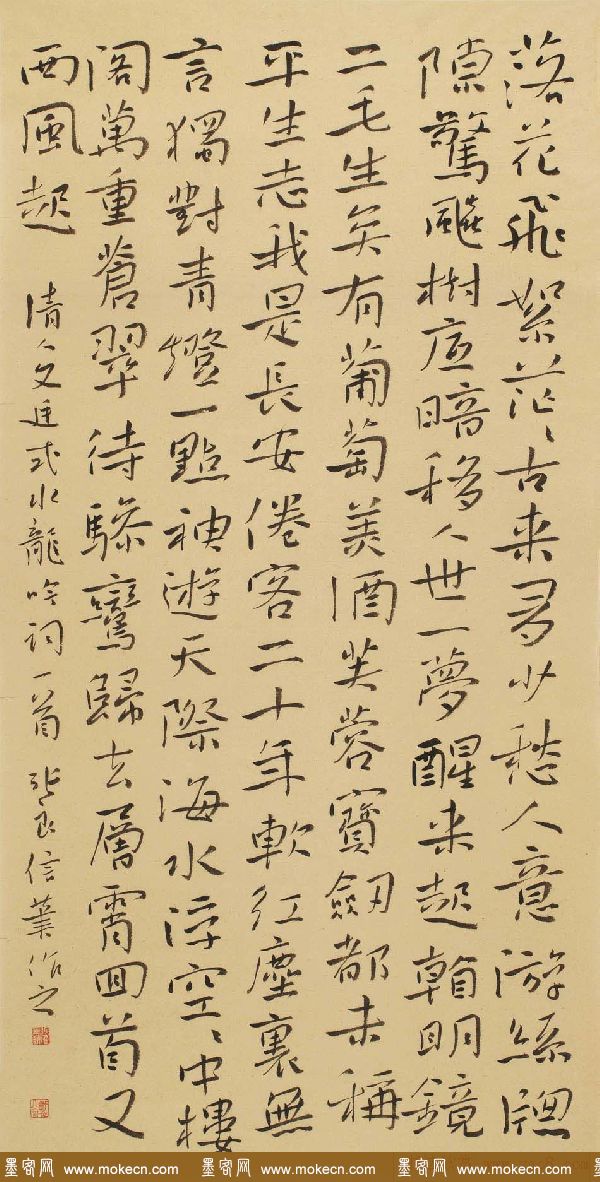 落花飛絮茫〻古来多少愁人意游絲牕
隙驚飈樹底暗移人世一夢醒来起看明鏡
二毛生矣有葡萄美酒芙蓉寶劔都未稱
平生志我是長安倦客二十年軟紅塵裏無
言獨對青燈一點神遊天際海水浮空〻中樓
閣萬重蒼翠待驂鸞歸去層霄回首又
西風起
清人文廷式水龍吟詞一首 張良信
墨客网 www.mokecn.com 墨客网 www.mokecn.com 墨客网 www.mokecn.com